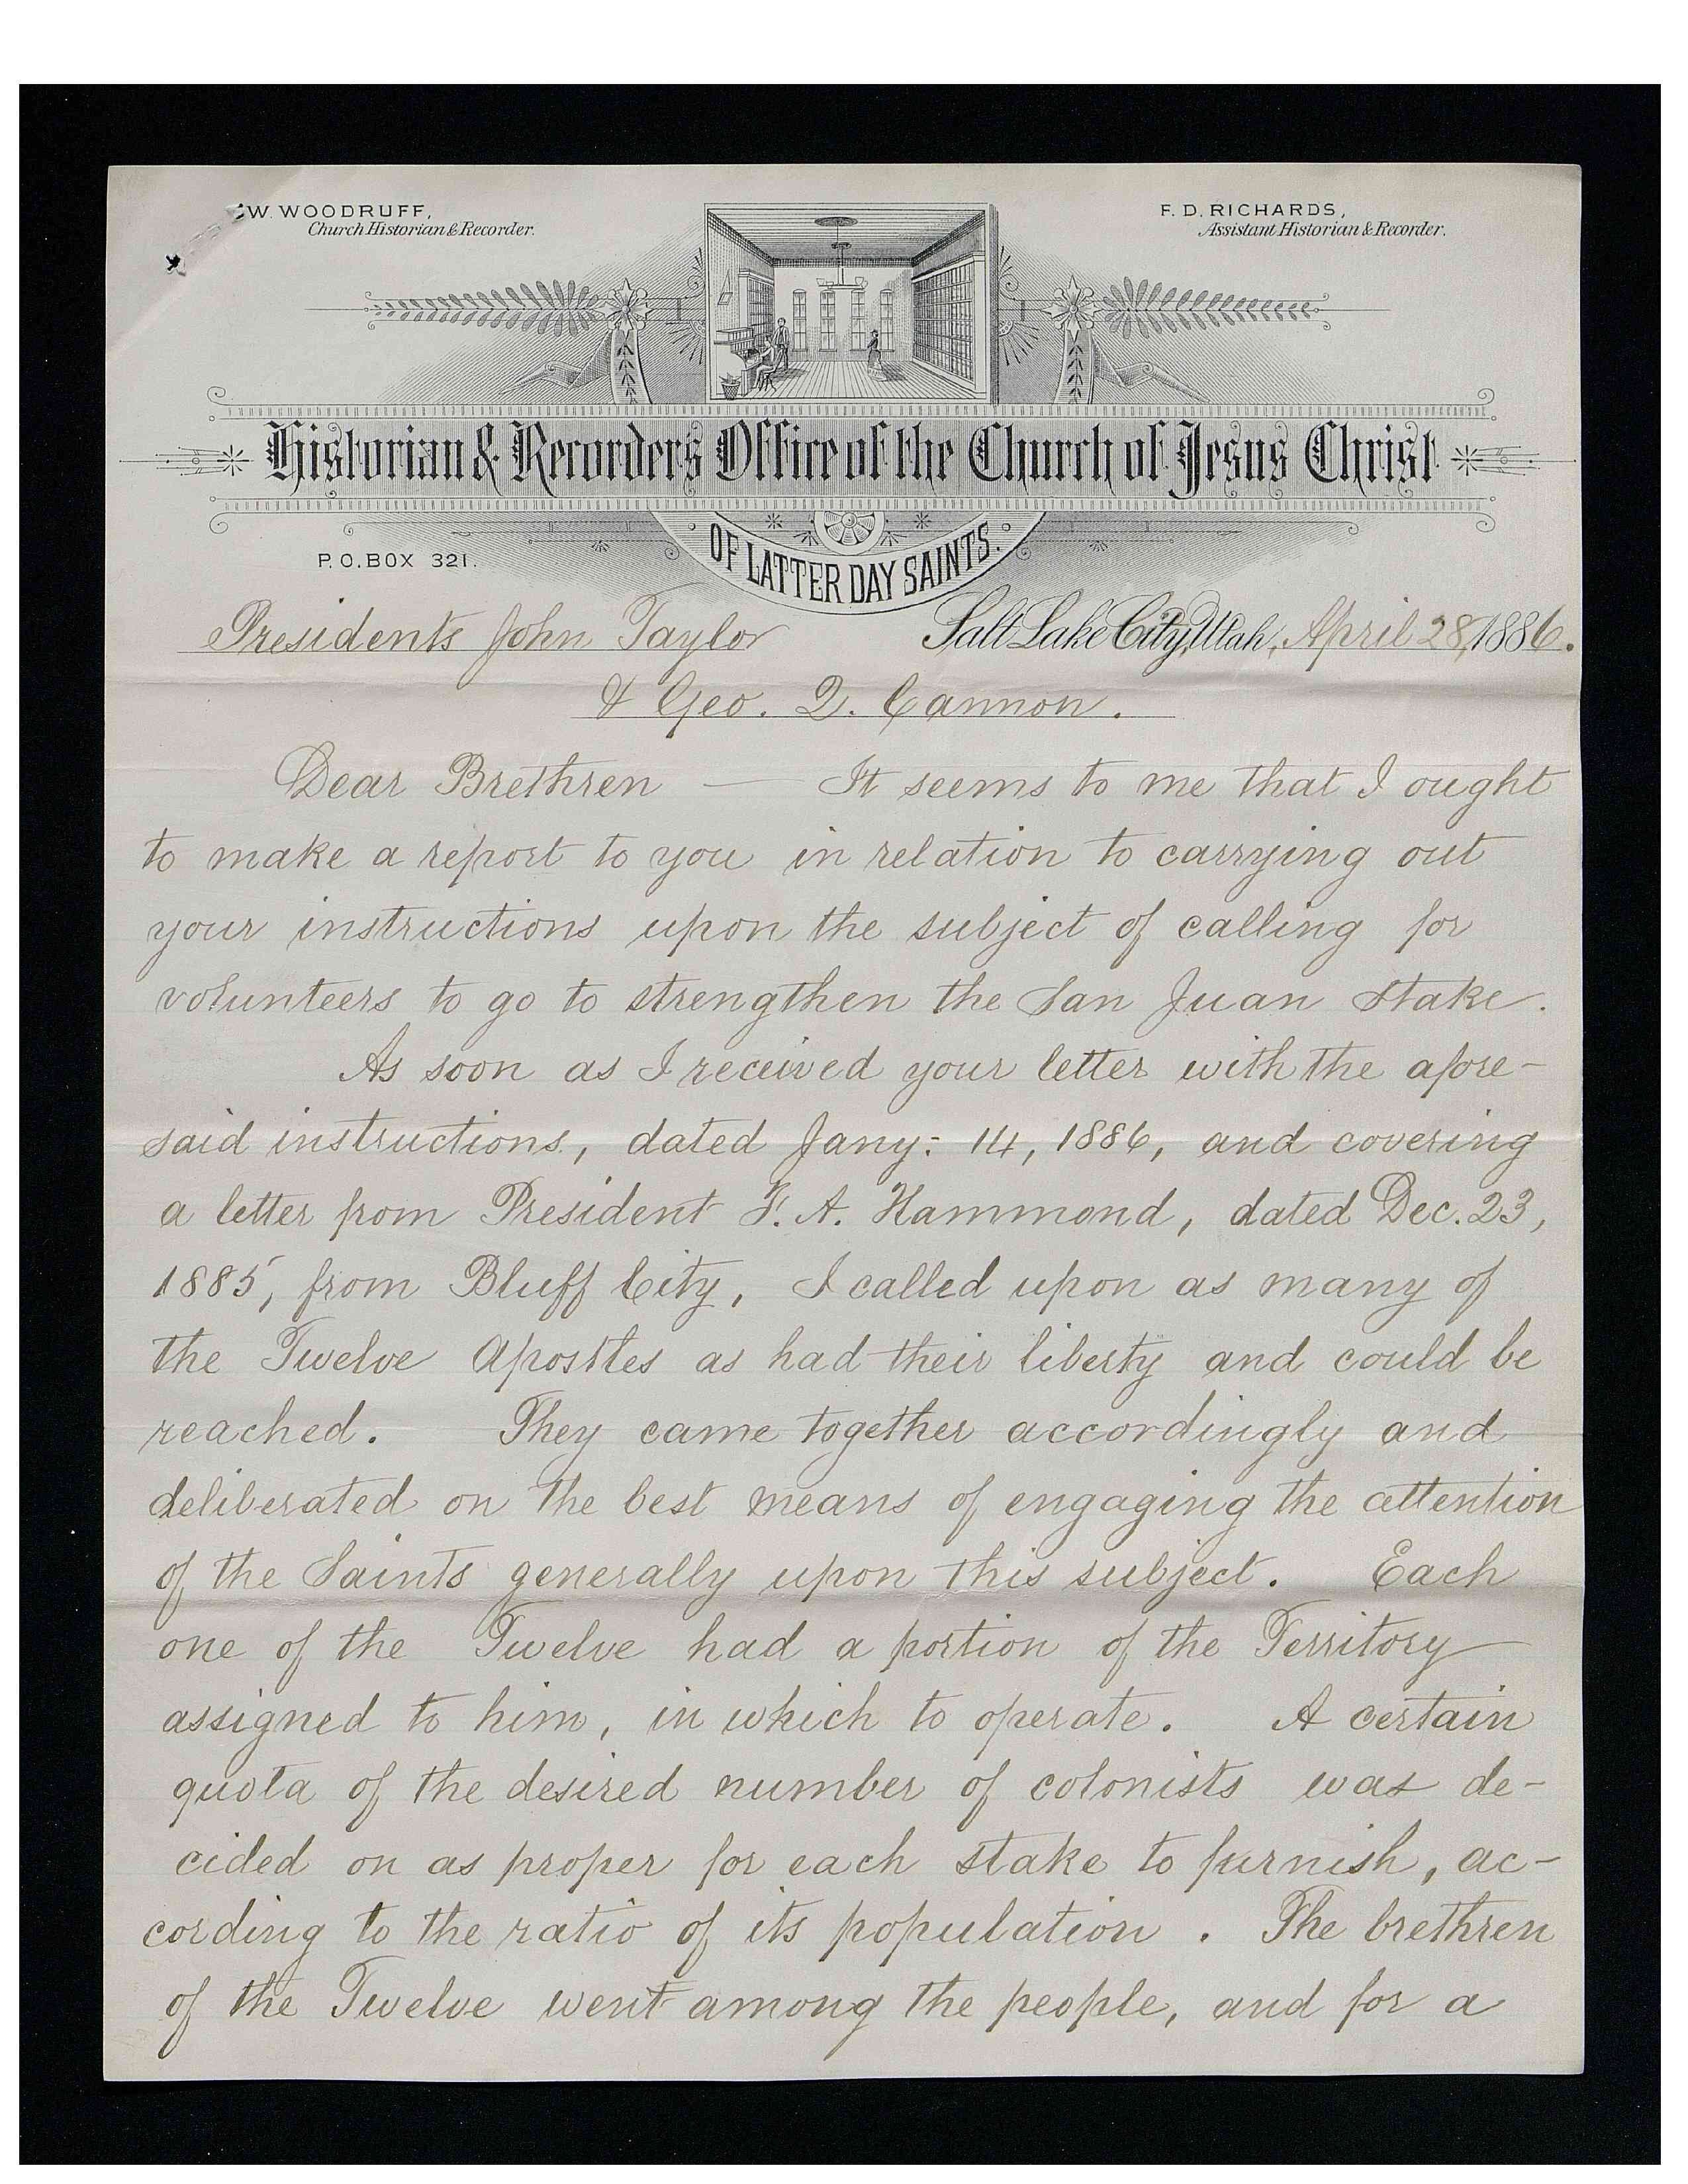 W. WOODRUFF,
Church Historian & Recorder.
F. D. RICHARDS,
Assistant Historian & Recorder.
Historian & Recorder's Office of the Church of Jesus Christ
OF LATTER DAY SAINTS.
P. O. BOX 321.
Salt Lake City, Utah, April 28, 1886.
Presidents John Taylor
& Geo. Q. Cannon.
Dear Brethren — It seems to me that I ought
to make a report to you in relation to carrying out
your instructions upon the subject of calling for
volunteers to go to strengthen the San Juan Stake.
As soon as I received your letter with the afore-
said instructions, dated Jany: 14, 1886, and covering
a letter from President F. A. Hammond, dated Dec. 23,
1885, from Bluff City, I called upon as many of
the Twelve Apostles as had their liberty and could be
reached. They came together accordingly and
deliberated on the best means of engaging the attention
of the Saints generally upon this subject. Each
one of the Twelve had a portion of the Territory
assigned to him, in which to operate. A certain
quota of the desired number of colonists was de-
cided on as proper for each stake to furnish, ac-
cording to the ratio of its population. The brethren
of the Twelve went among the people, and for a